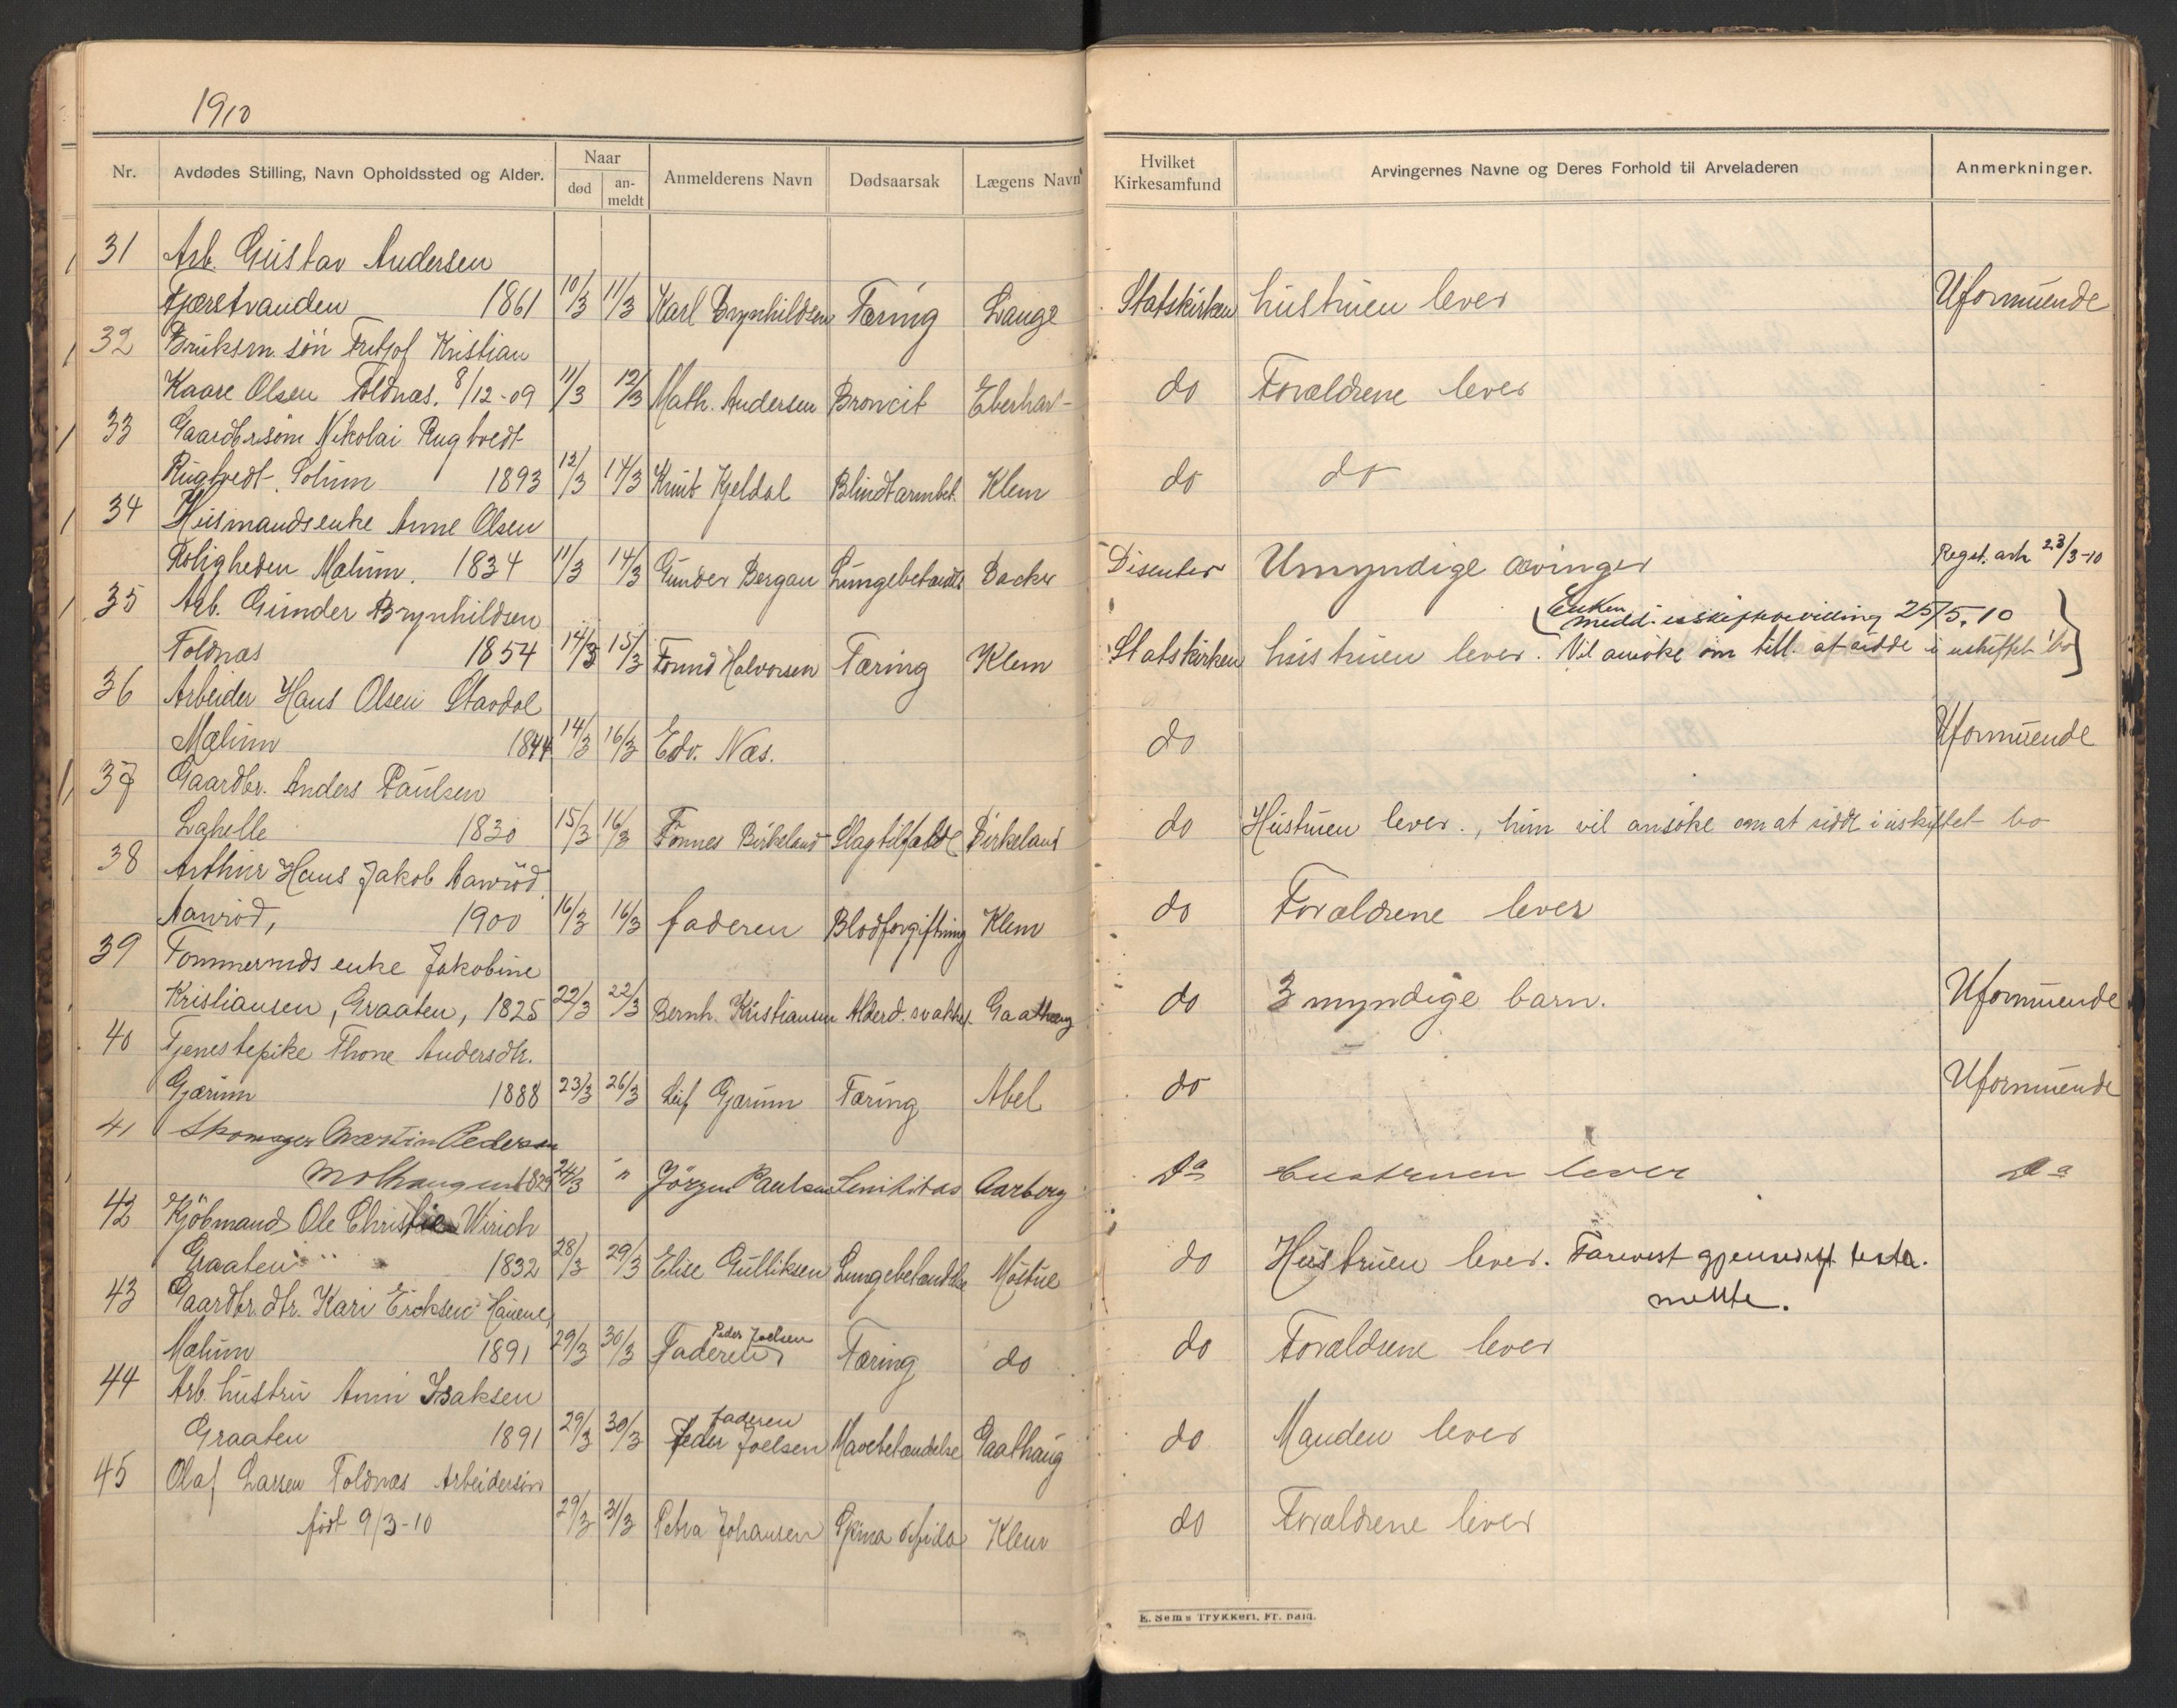 1910
Nr. Avdødes Stilling, Navn Opholdssted og Alder. Naar død an-meldt Anmelderens Navn Dødsaarsak Lægens Navn Hvilket Kirkesamfund Arvingernes Navne og Deres Forhold til Arveladeren Anmerkninger.
31 Arb. Gustav Andersen
1861 10/3 11/3 Karl Brynhildsen Tæring Lange Statskirken hustruen lever Uformuende
32 Bruksm. søn Fritjof Kristian
Kaare Olsen Foldnæs. 8/12-09 11/3 12/3 Math. Andersen Broncit Eberhar- do Forældrene lever
33 Gaardbr søn Nikolai Rugtvedt
Rugtvedt Solum 1893 12/3 14/3 Knut Kjeldal Blindtarmbet. Klem do do
34 Husmandsenke Anne Olsen
Roligheden Mælum. 1834 11/3 14/3 Gunder Bergan Lungebetændls Backer Disenter Umyndige arvinger Regst. ark 23/3-10
35 Arb. Gunder Brynhildsen
Enken medd. uskiftebevilling 25/5.10
Foldnæs 1854 14/3 15/3 Halvorsen Tæring Klem Statskirken hustruen lever. Vil ansøke om till. at sidde i uskiftet bo
36 Arbeider Hans Olsen Stavdal
Mælum 1844 14/3 16/3 Edv. Næs. do Uformuende
37 Gaardbr. Anders Paulsen
Lahelle 1830 15/3 16/3 Tønnes Birkeland Slagtilfælde Birkeland do Hustruen lever., hun vil ansøke om at sidde i uskiftet bo
38 Arthur Hans Jakob Aanrød
Aanrød, 1900 16/3 16/3 faderen Blodforgiftning Klem do Forældrene lever
39 Tømmermds enke Jakobine
Kristiansen, Graaten, 1825 22/3 22/3 Bernh. Kristiansen Alderd. svakhet Gaathaug do 3 myndige barn. Uformuende
40 Tjenestepike Thone Andersdtr.
Gjærum 1888 23/3 26/3 Leif Gjærum Tæring Abel do Uformuende
41 Skomager Martin Pedersen
Molhaugen 1829 24/3 " Jørgen Paulsen Senilitas Aarberg Do Hustruen lever Do
42 Kjøbmand Ole Christie Wirich
Graaten 1832 28/3 29/3 Elise Gulliksen Lungebetændelse Møstue do Hustruen lever. gjensidigt testa-
mente.
43 Gaardbr. dtr. Kari Eriksen Hauene,
Mælum 1891 29/3 30/3 Faderen Peder Joelsen Tæring do do Forældrene lever
44 Arb. hustru Anni Isaksen
Graaten 1891 29/3 30/3 faderen Peder Joelsen Mavebetændelse Gaathaug do Manden lever
45 Olaf Larsen Foldnæs Arbeidersøn
født 9/3-10 29/3 31/3 Petra Johansen Spina bifida Klem do Forældrene lever
E. Sems Trykkeri, Fr. hald.